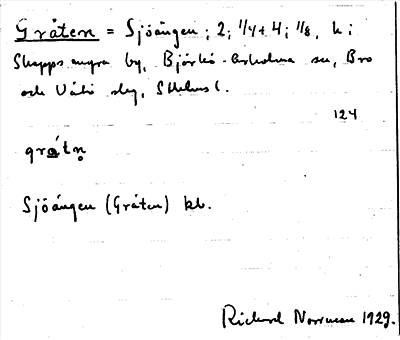 Gråten = Sjöängen; 2, 1/4 + 4; 1/8, h i
Skeppsmyra by, Björkö-Arholma sn, Bro
och Vätö slg, Sthlms l.
124
gråtn̥
Sjöängen (Gråten) kb.
Richard Norrman 1929.